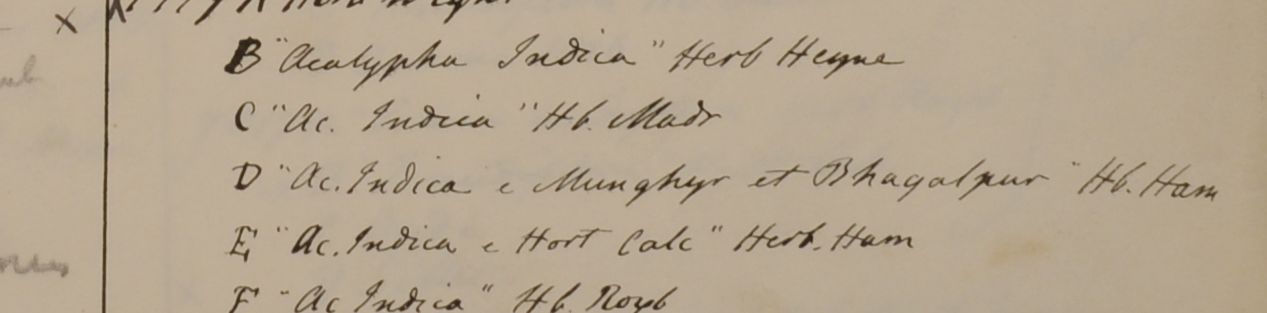 B "Acalypha Indica" Herb Heyne
C "Ac. Indica" Hb. Madr
D "Ac. Indica e Munghyr et Bhagalpur" Hb. Ham
E "Ac. Indica e Hort Calc" Herb. Ham
F "Ac Indica" Hb. Roxb